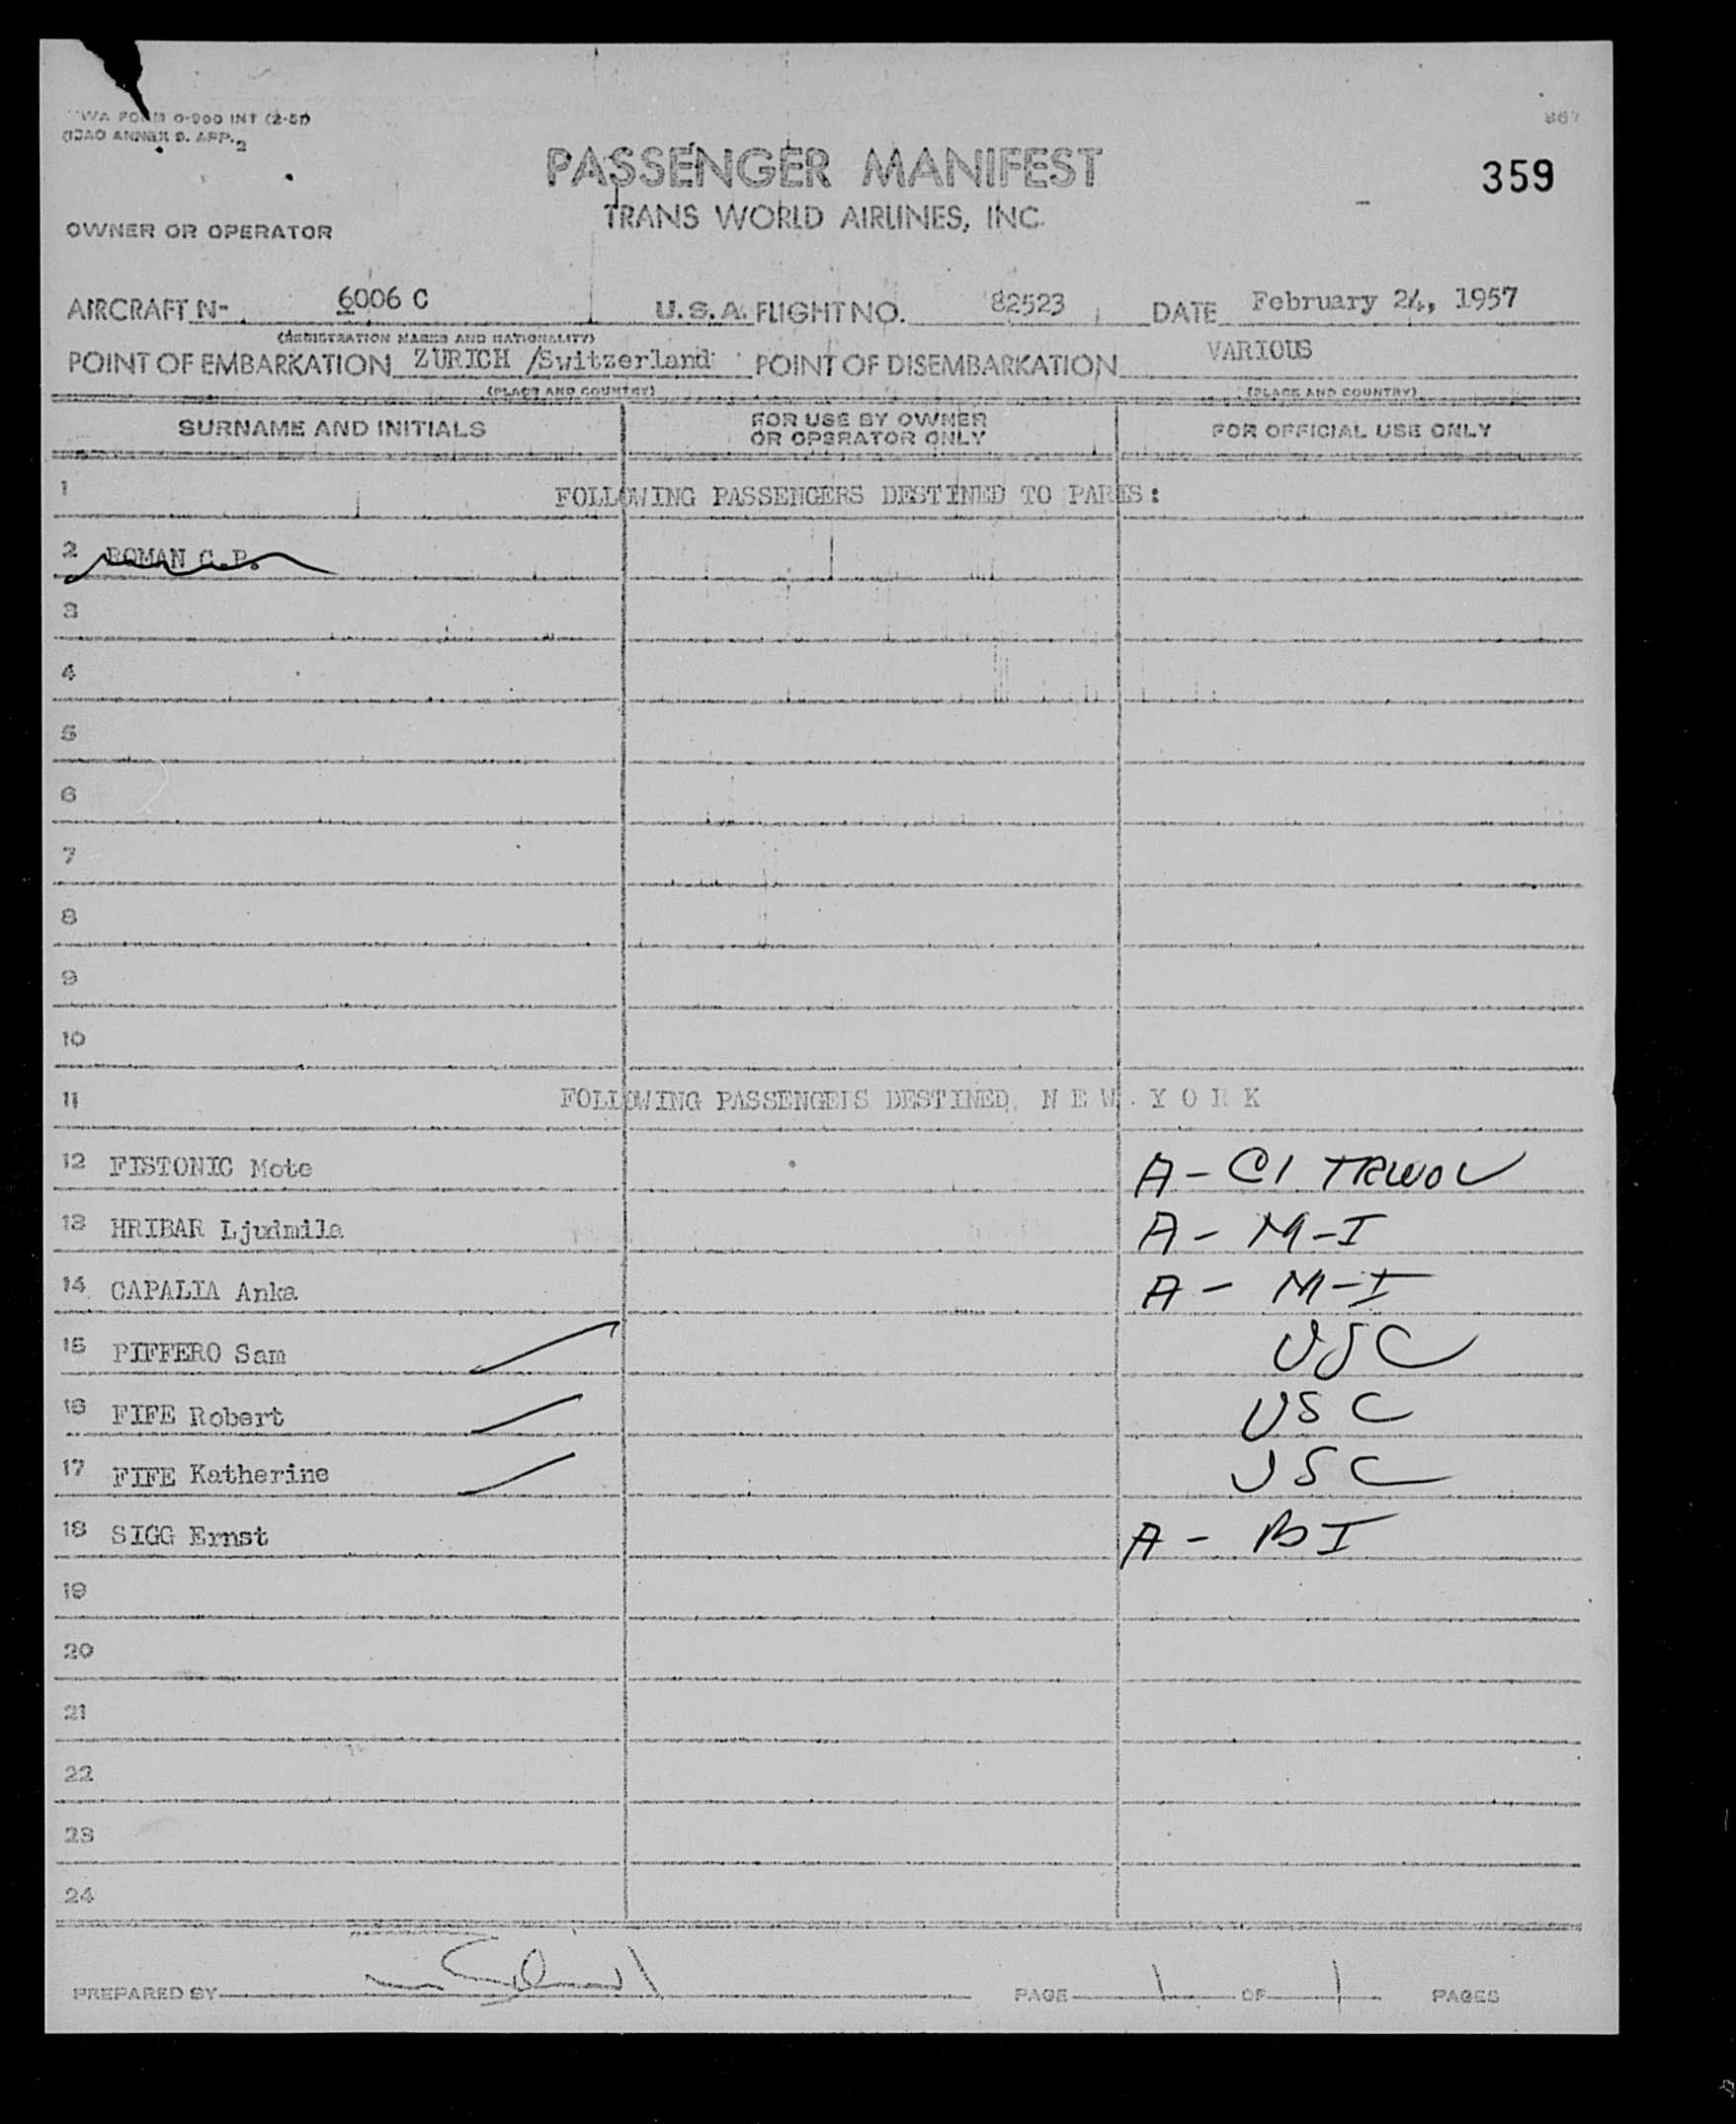 TWA FORM O-900 INT (2-51)
(ICAO ANNEX 9. APP. 2
867
PASSENGER MANIFEST
359
TRANS WORLD AIRLINES, INC.
OWNER OR OPERATOR
AIRCRAFT N- 6006 C U.S.A. FLIGHT NO. 82523 DATE February 24, 1957
(REGISTRATION MARKS AND NATIONALITY)
POINT OF EMBARKATION ZURICH /Switzerland POINT OF DISEMBARKATION VARIOUS
(PLACE AND COUNTRY) (PLACE AND COUNTRY)
SURNAME AND INITIALS FOR USE BY OWNER OR OPERATOR ONLY FOR OFFICIAL USE ONLY
1 FOLLOWING PASSENGERS DESTINED TO PARIS:
2 ROMAN C.P.
3
4
5
6
7
8
9
10
11 FOLLOWING PASSENGERS DESTINED N E W Y O R K
12 FISTONIC Mote A - C1
13 HRIBAR Ljudmila A - M-I
14 CAPALIA Anka A - M-I
15 PIFFERO Sam USC
16 FIFE Robert USC
17 FIFE Katherine USC
18 SIGG Ernst A - BI
19
20
21
22
23
24
PREPARED BY PAGE 1 OF 1 PAGES